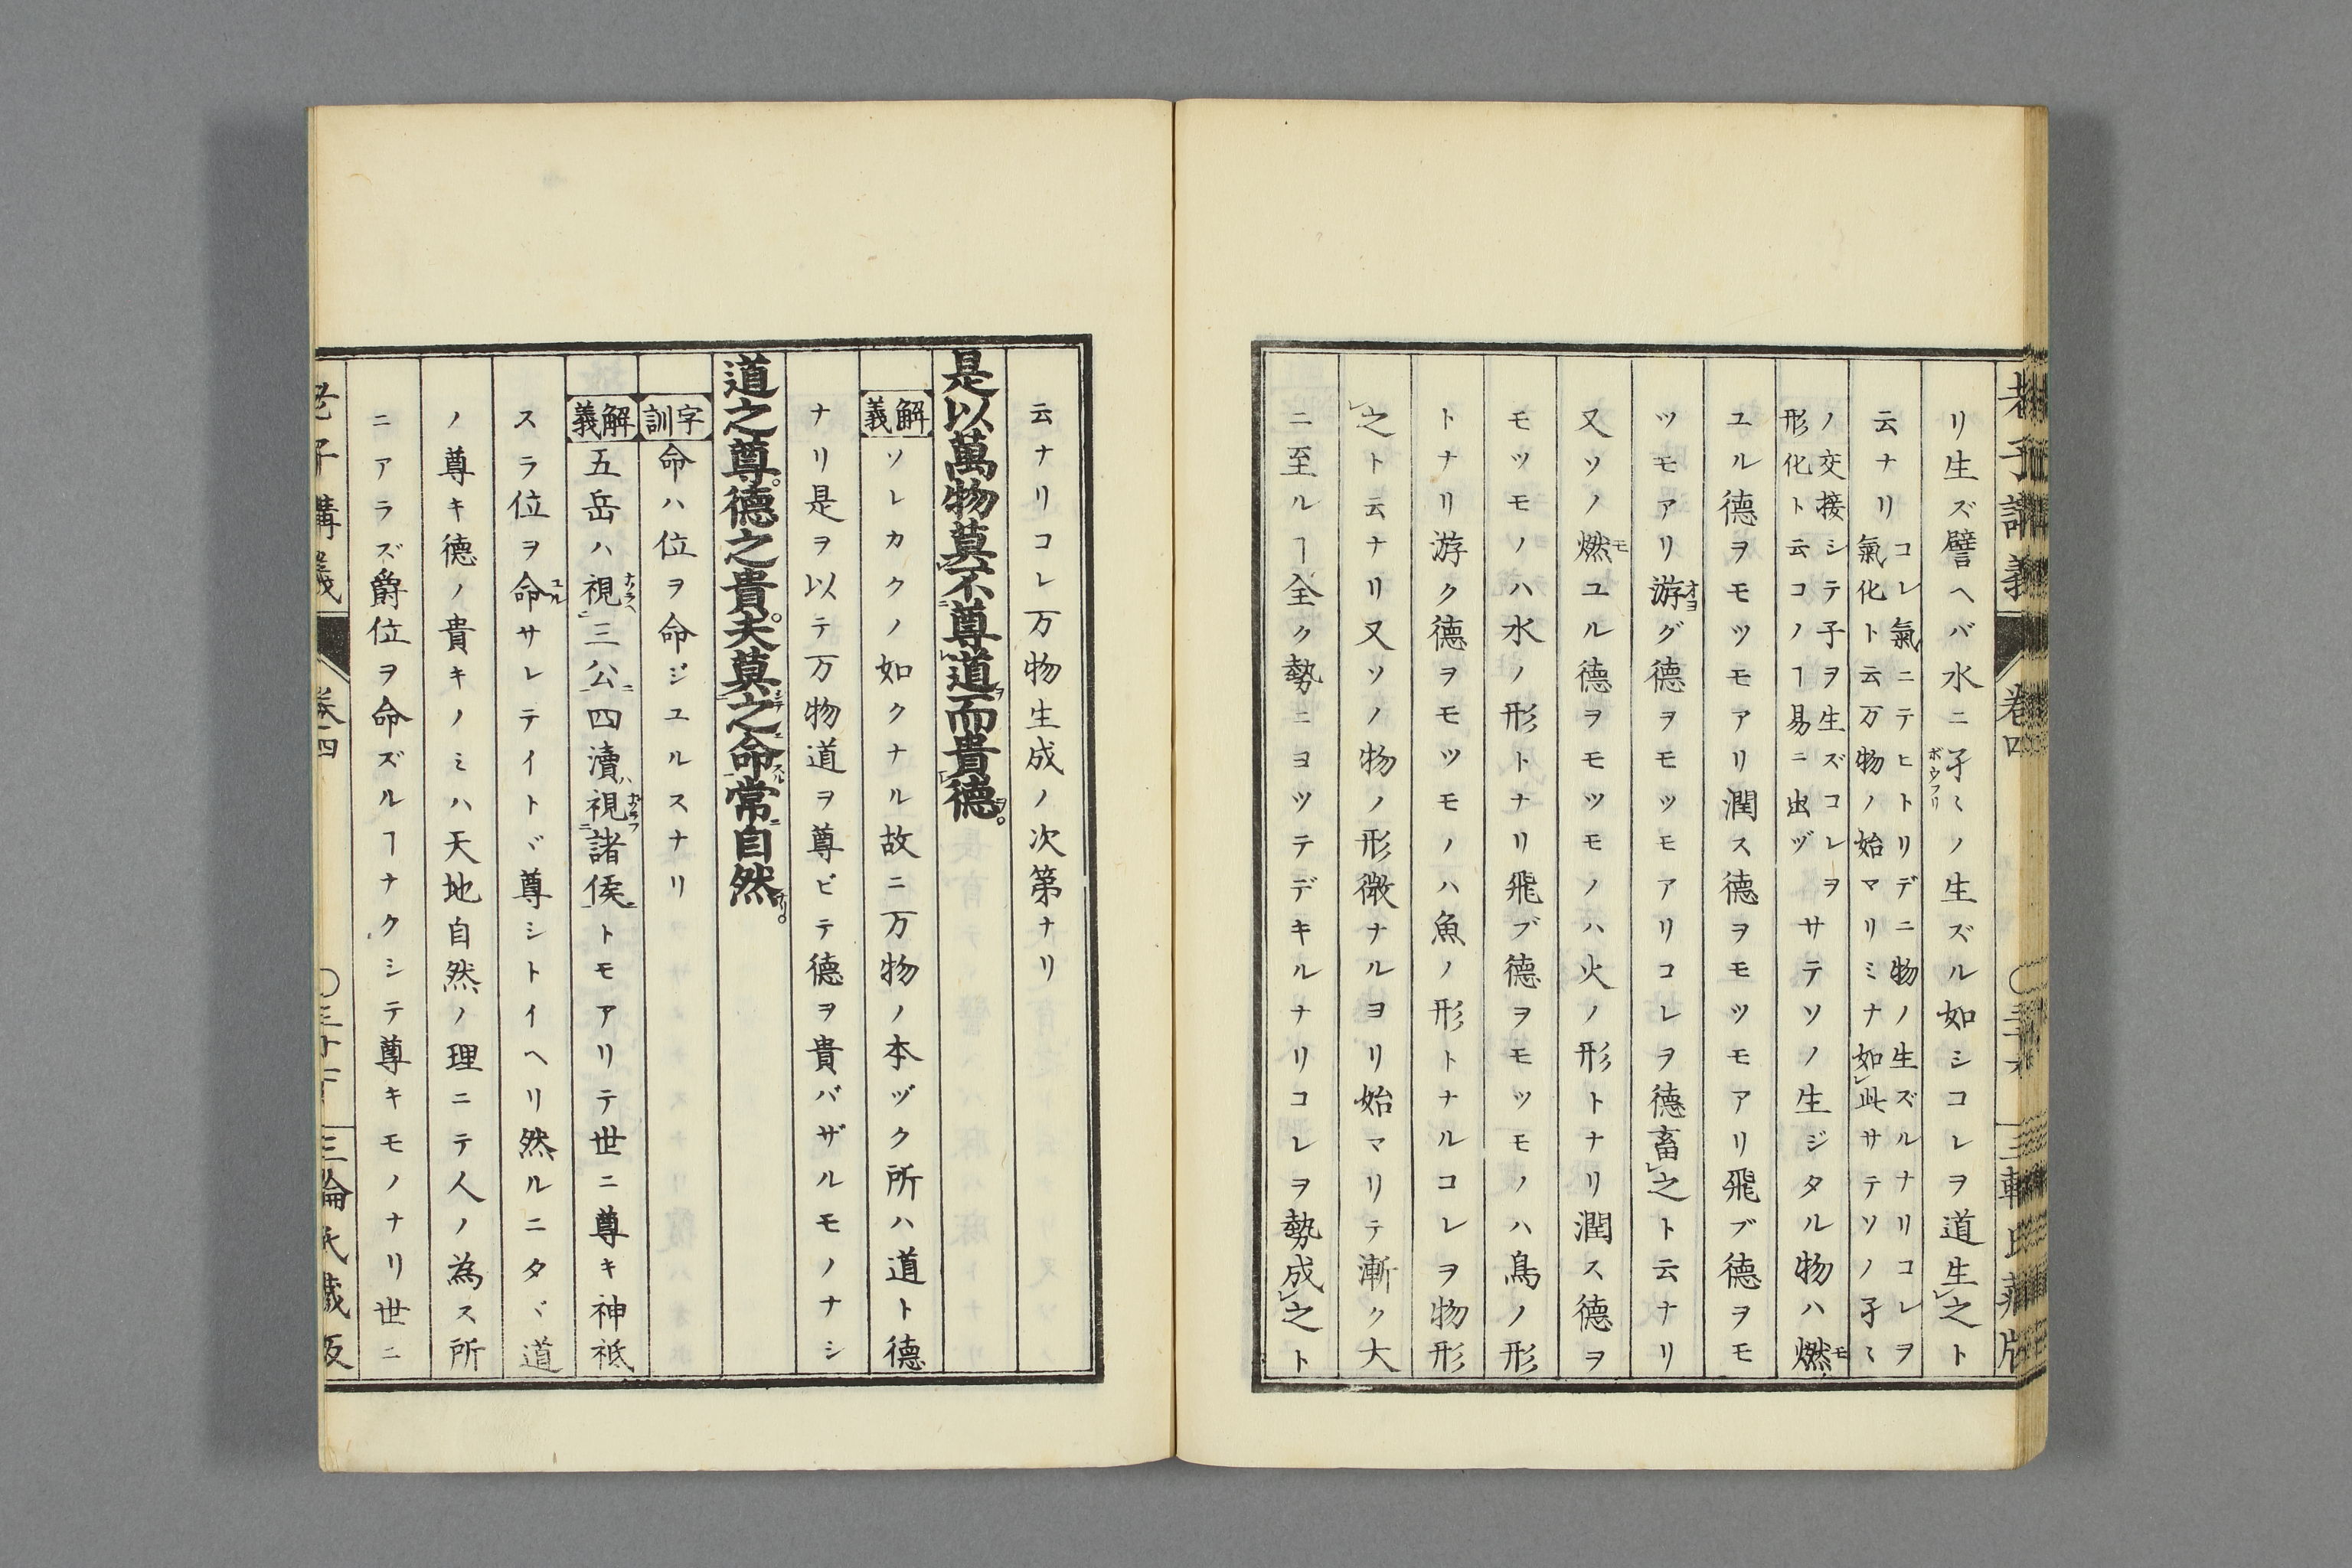 老子講義 卷四
リ生ズ譬ヘバ水ニ孑〻ノ生ズル如シコレヲ道生レ之ト
ボウフリ
云ナリ
コレ氣ニテヒトリデニ物ノ生ズルナリコレヲ
氣化ト云万物ノ始マリミナ如レ此サテソノ孑〻
ノ交接シテ子ヲ生ズコレヲ
形化ト云コノヿ易ニ出ヅ
サテソノ生ジタル物ハ燃モ
ユル德ヲモツモアリ潤ス德ヲモツモアリ飛ブ德ヲモ
ツモアリ游オヨグ德ヲモツモアリコレヲ德畜レ之ト云ナリ
又ソノ燃モユル德ヲモツモノハ火ノ形トナリ潤ス德ヲ
モツモノハ水ノ形トナリ飛ブ德ヲモツモノハ鳥ノ形
トナリ游ク德ヲモツモノハ魚ノ形トナルコレヲ物形
レ之ト云ナリ又ソノ物ノ形微ナルヨリ始マリテ漸ク大
ニ至ルヿ全ク勢ニヨツテデキルナリコレヲ勢成レ之ト
云ナリコレ万物生成ノ次第ナリ
是以萬物莫不尊道而貴德。
解義 ソレカクノ如クナル故ニ万物ノ本ヅク所ハ道ト德
ナリ是ヲ以テ万物道ヲ尊ビテ德ヲ貴バザルモノナシ
道之尊。德之貴。夫莫之命常自然。
字訓 命ハ位ヲ命ジユルスナリ
解義 五岳ハ視ナゾラヘ三公ニ四瀆ハ視ナゾラフ諸侯ニトモアリテ世ニ尊キ神祗
スラ位ヲ命ユルサレテイトヾ尊シトイヘリ然ルニタヾ道
ノ尊キ德ノ貴キノミハ天地自然ノ理ニテ人ノ為ス所
ニアラズ爵位ヲ命ズルヿナクシテ尊キモノナリ世ニ
老子講義 卷四 三輪氏蔵版